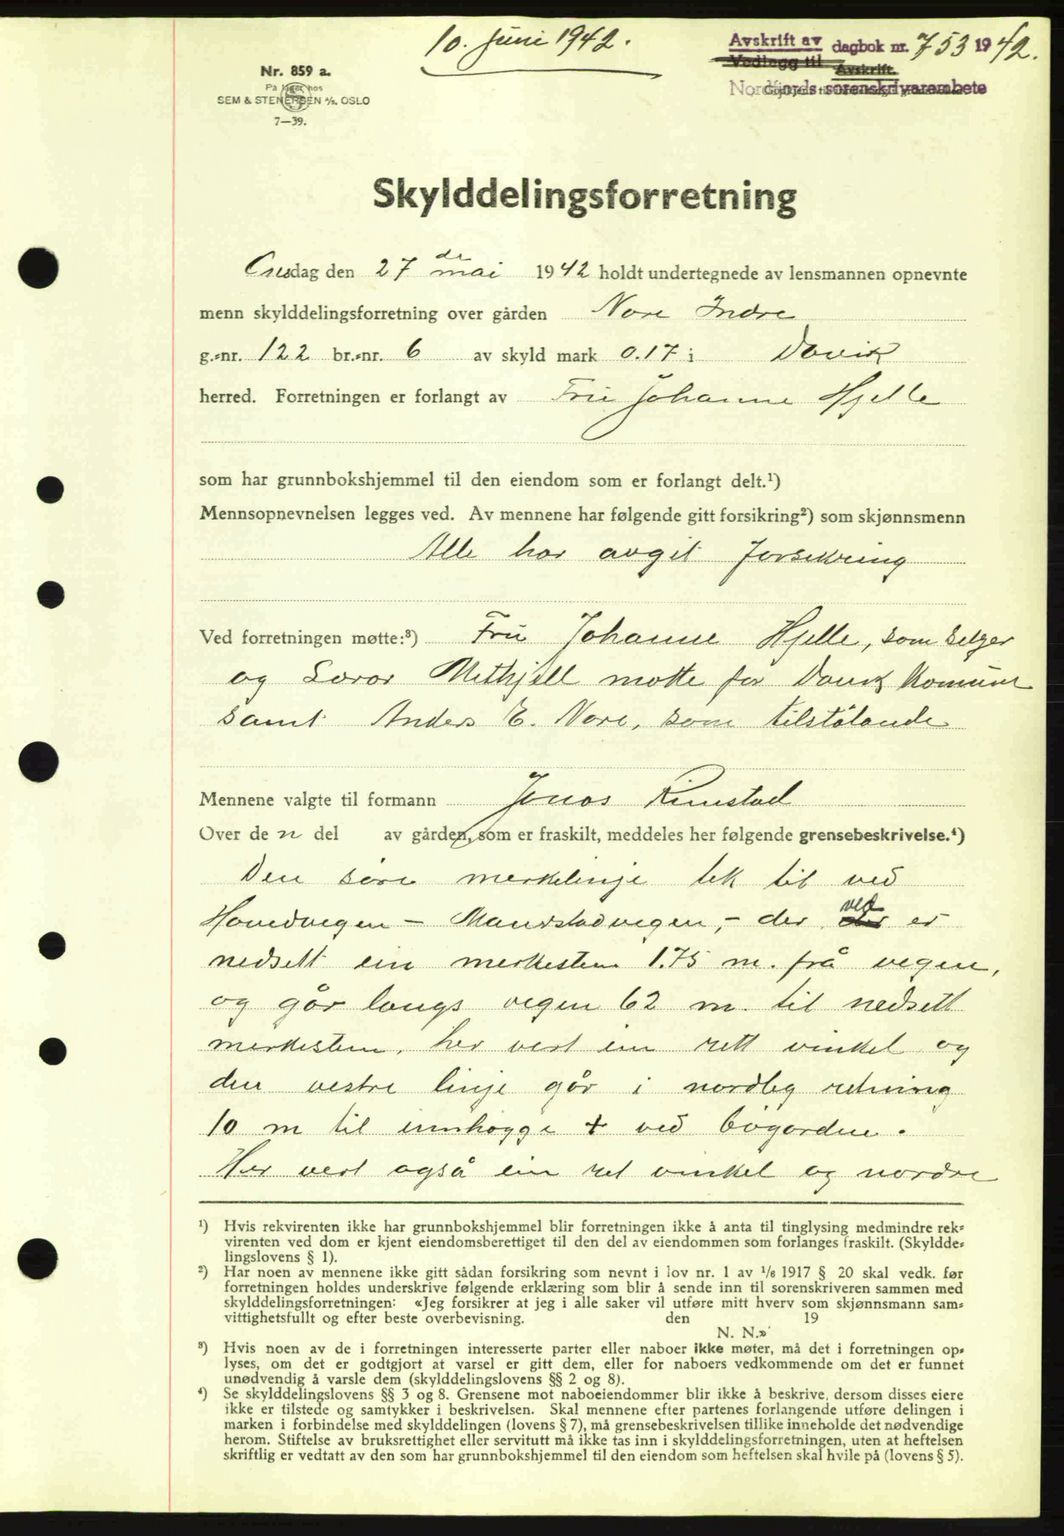 10. juni 1942.
Avskrift av dagbok nr. 753 1942.
Vedlegg til Avskrift.
Nordfjords sorenskrivarembete
Nr. 859 a.
På lager hos
SEM & STENERSEN A/S. OSLO
7—39.
Skylddelingsforretning
Onsdag den 27de mai 1942 holdt undertegnede av lensmannen opnevnte
menn skylddelingsforretning over gården Nore Indre
g.-nr. 122 br.-nr. 6 av skyld mark 0.17 i Davik
herred. Forretningen er forlangt av Fru Johanne Hjelle
som har grunnbokshjemmel til den eiendom som er forlangt delt.¹)
Mennsopnevnelsen legges ved. Av mennene har følgende gitt forsikring²) som skjønnsmenn
Alle har avgit forsikring
Ved forretningen møtte:³) Fru Johanne Hjelle, som selger
og Lærar Methjell møtte for Davik Komune
samt Anders E. Nore, som tilstøtande
Mennene valgte til formann Jonas Rimstad
Over de n del av gården, som er fraskilt, meddeles her følgende grensebeskrivelse.⁴)
Den søre merkelinje tek til ved
Hovedvegen – Maurstadvegen, – der ved er
nedsett ein merkestein 1.75 m. frå vegen,
og går langs vegen 62 m. til nedsett
merkestein, her vert ein rett vinkel og
den vestre linje går i nordleg retning
10 m til innhogge + ved bøgarden.
Her vert også ein ret vinkel og nordre
¹) Hvis rekvirenten ikke har grunnbokshjemmel blir forretningen ikke å anta til tinglysing medmindre rek-
virenten ved dom er kjent eiendomsberettiget til den del av eiendommen som forlanges fraskilt. (Skyldde-
lingslovens § 1).
²) Har noen av mennene ikke gitt sådan forsikring som nevnt i lov nr. 1 av 1/6 1917 § 20 skal vedk. før
forretningen holdes underskrive følgende erklæring som blir å sende inn til sorenskriveren sammen med
skylddelingsforretningen: «Jeg forsikrer at jeg i alle saker vil utføre mitt hverv som skjønnsmann sam-
vittighetsfullt og efter beste overbevisning. den 19
N. N.»
³) Hvis noen av de i forretningen interesserte parter eller naboer ikke møter, må det i forretningen op-
lyses, om det er godtgjort at varsel er gitt dem, eller for naboers vedkommende om det er funnet
unødvendig å varsle dem (skylddelingslovens §§ 2 og 8).
⁴) Se skylddelingslovens §§ 3 og 8. Grensene mot naboeiendommer blir ikke å beskrive, dersom disses eiere
ikke er tilstede og samtykker i beskrivelsen. Skal mennene efter partenes forlangende utføre delingen i
marken i forbindelse med skylddelingen (lovens § 7), må grensebeskrivelsen tillike inneholde det nødvendige
herom. Stiftelse av bruksrettighet eller servitutt må ikke tas inn i skylddelingsforretningen, uten at heftelsen
skriftlig er vedtatt av den som har grunnbokshjemmel til den eiendom som heftelsen skal hvile på (lovens § 5).